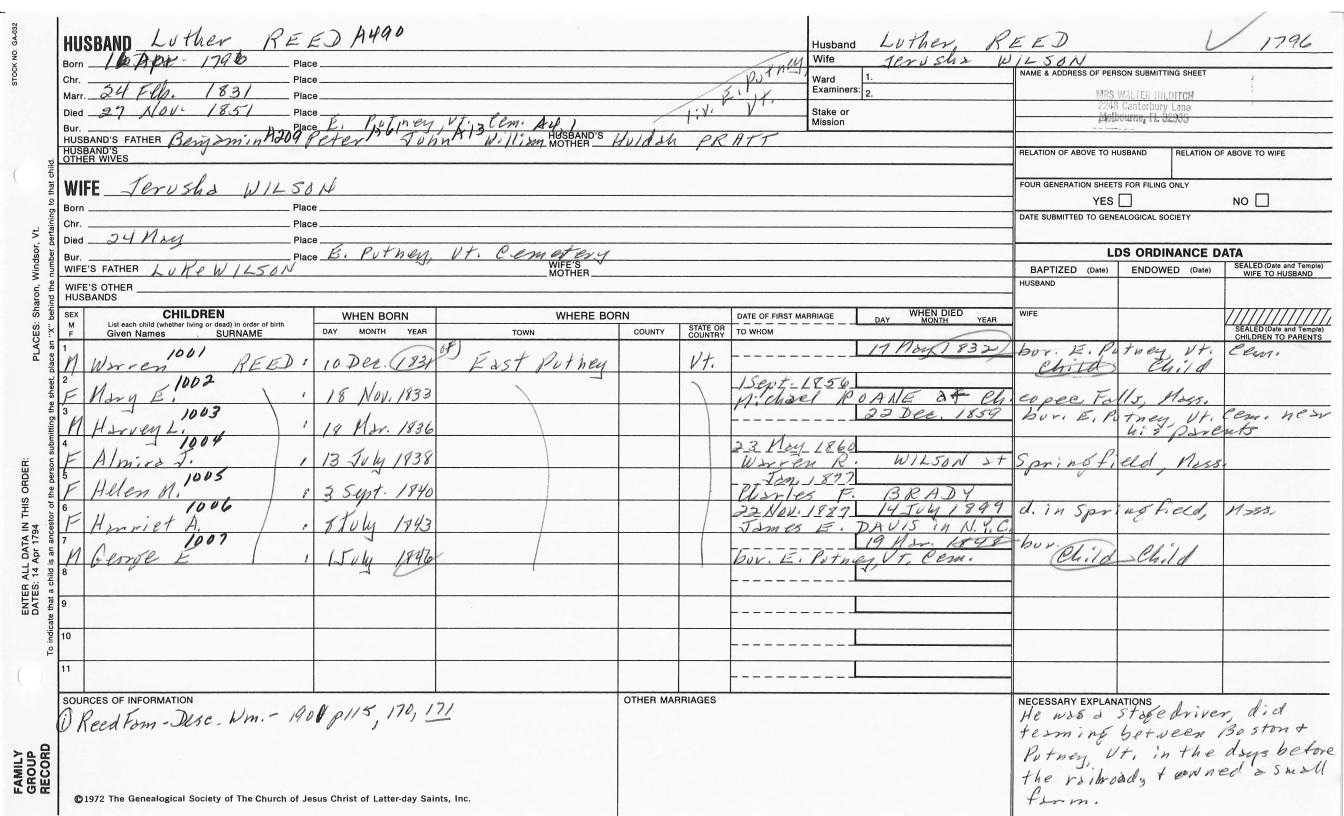 STOCK NO. GA-032
HUSBAND Luther REED A490
Born 16 Apr. 1796 Place
Chr. Place
Marr. 24 Feb. 1831 Place
liv. E. Putney, Vt.
Died 27 Nov. 1851 Place
Bur. Place E. Putney, Vt. Cem.
HUSBAND'S FATHER Benjamin A209 Peter John A13 William HUSBAND'S MOTHER Huldah PRATT
HUSBAND'S OTHER WIVES
WIFE Jerusha WILSON
Born Place
Chr. Place
Died 24 May Place
Bur. Place E. Putney, Vt. Cemetery
WIFE'S FATHER Luke WILSON WIFE'S MOTHER
WIFE'S OTHER HUSBANDS
Husband Luther, REED 1796
Wife Jerusha WILSON
Ward Examiners: 1. 2.
Stake or Mission
NAME & ADDRESS OF PERSON SUBMITTING SHEET
MRS WALTER HILDITCH
2248 Canterbury Lane
Melbourne, FL 32935
RELATION OF ABOVE TO HUSBAND RELATION OF ABOVE TO WIFE
FOUR GENERATION SHEETS FOR FILING ONLY
YES NO
DATE SUBMITTED TO GENEALOGICAL SOCIETY
LDS ORDINANCE DATA
BAPTIZED (Date) ENDOWED (Date) SEALED (Date and Temple) WIFE TO HUSBAND
HUSBAND
WIFE
SEALED (Date and Temple) CHILDREN TO PARENTS
SEX M F CHILDREN WHEN BORN WHERE BORN DATE OF FIRST MARRIAGE WHEN DIED
List each child (whether living or dead) in order of birth
Given Names SURNAME DAY MONTH YEAR TOWN COUNTY STATE OR COUNTRY TO WHOM DAY MONTH YEAR
1 M Warren 1001 REED 10 Dec. 1831 East Putney Vt. 17 May 1832 bur. E. Putney, Vt. Cem.
Child Child
2 F Mary E. 1002 " 18 Nov. 1833 1 Sept. 1856
Michael ROANE at Chicopee Falls, Mass.
3 M Harvey L. 1003 " 18 Mar. 1836 22 Dec. 1859 bur. E. Putney, Vt. Cem. near his parents
4 F Almira J. 1004 " 13 July 1838 23 May 1860
Warren R. WILSON at Springfield, Mass.
5 F Helen M. 1005 " 3 Sept. 1840 Jan. 1877
Charles F. BRADY
6 F Harriet A. 1006 July 1843 22 Nov. 1887 14 July 1899 d. in Springfield, Mass.
James E. DAVIS in N.Y.C.
7 M George E 1007 " 1 July 1846 19 Mar. 1848 bur.
bur. E. Putney, Vt. Cem. Child Child
8
9
10
11
SOURCES OF INFORMATION
① Reed Fam - Desc. Wm. - 1901 p115, 170, 171
OTHER MARRIAGES
NECESSARY EXPLANATIONS
He was a stagedriver, did
teaming between Boston &
Putney, Vt. in the days before
the railroad, & owned a small
farm.
©1972 The Genealogical Society of The Church of Jesus Christ of Latter-day Saints, Inc.
FAMILY GROUP RECORD
ENTER ALL DATA IN THIS ORDER:
DATES: 14 Apr 1794
PLACES: Sharon, Windsor, Vt.
To indicate that a child is an ancestor of the person submitting the sheet, place an "X" behind the number pertaining to that child.